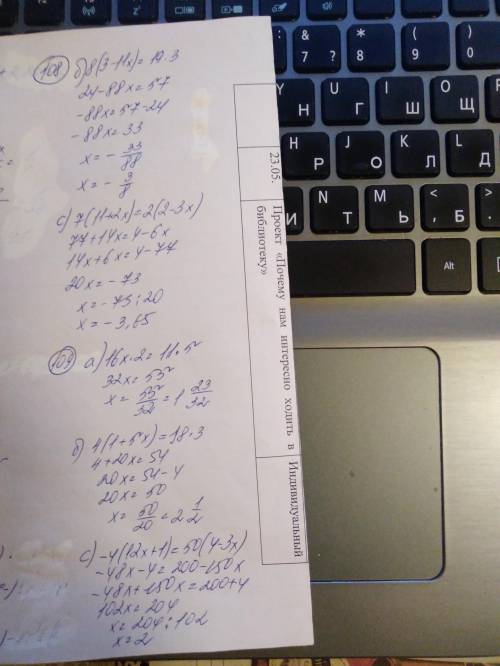 108 б) 8(3-11x)= 19·3
24-88x=57
-88x=57-24
-88x=33
x= - 33/88
x= - 3/8
c) 7(11+2x)=2(2-3x)
77+14x=4-6x
14x+6x=4-77
20x=-73
x=-73:20
x=-3,65
109 a) 16x·2=11·5
32x=55
x= 55/32 = 1 23/32
б) 4(1+5x)=18·3
4+20x=54
20x=54-4
20x=50
x= 50/20 = 2 1/2
c) -4(12x+1)=50(4-3x)
-48x-4=200-150x
-48x+150x=200+4
102x=204
x=204:102
x=2
23.05.
Проект «Почему нам интересно ходить в
библиотеку»
Индивидуальный
& 7 ?
* 8
( 9
Y Н
U Г
I Ш
O Щ
H Р
J О
K Л
L Д
N Т
M Ь
< , Б
Alt